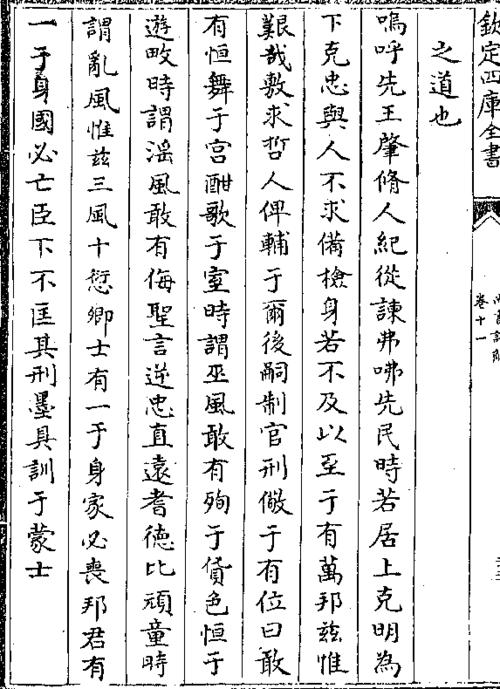 欽定四庫全書
卷十一
之道也
嗚呼先王肇脩人紀從諫弗咈先民時若居上克明為
下克忠與人不求備檢身若不及以至于有萬邦兹惟
艱哉敷求哲人俾輔于爾後嗣制官刑儆于有位曰敢
有恒舞于宫酣歌于室時謂巫風敢有殉于貨色恒于
遊畋時謂滛風敢有侮聖言逆忠直遠耆徳比頑童時
謂亂風惟兹三風十愆卿士有一于身家必喪邦君有
一于身國必亡臣下不匡其刑墨具訓于蒙士